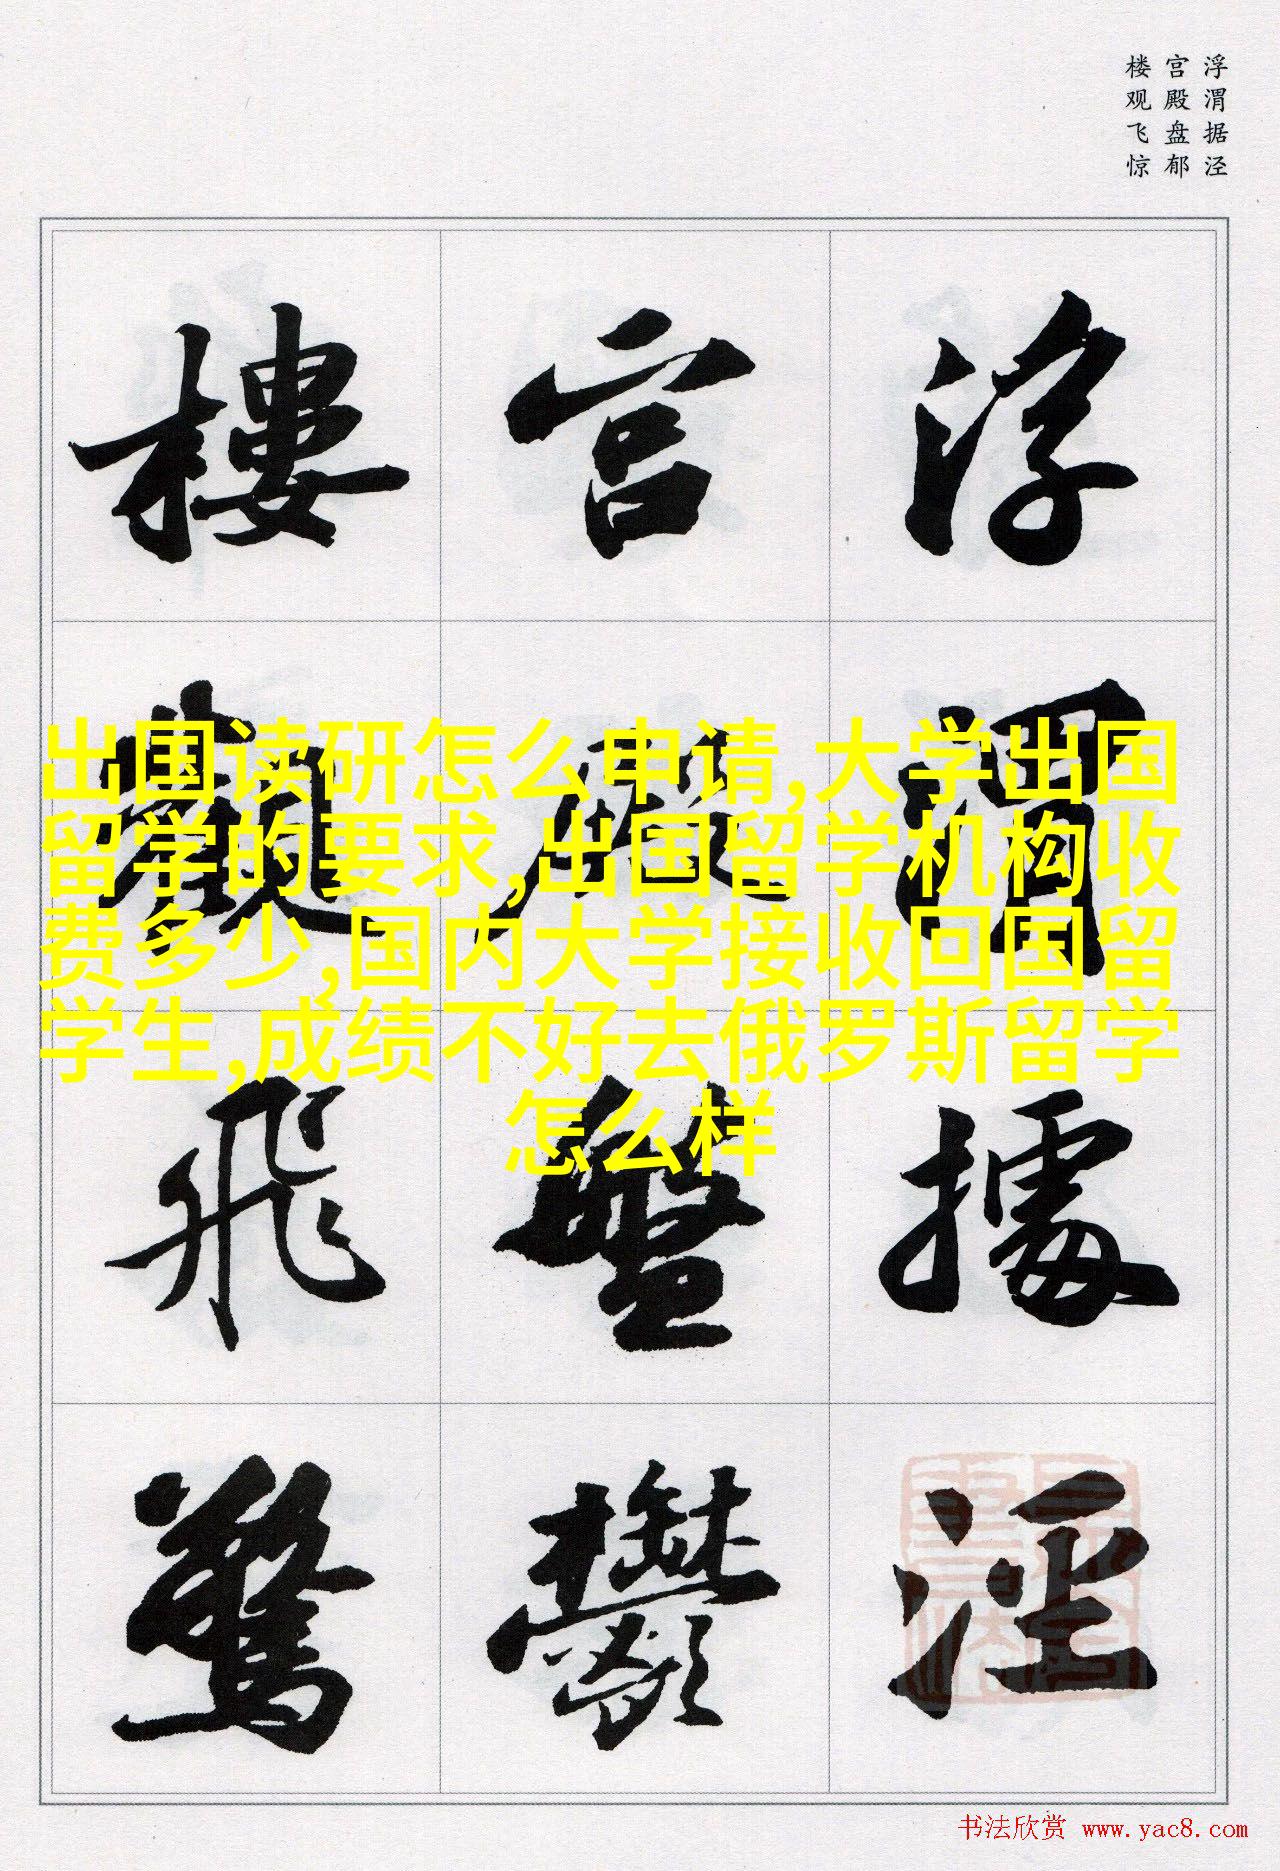 浮渭据泾
宫殿盘郁
楼观飞惊
浮渭據泾
宫殿盤鬱
樓觀飛驚
出国读研怎么申请,大学出国
留学的要求,出国留学机构收
费多少,国内大学接收回国留
学生,成绩不好去俄罗斯留学
怎么样
书法欣赏 www.yac8.com